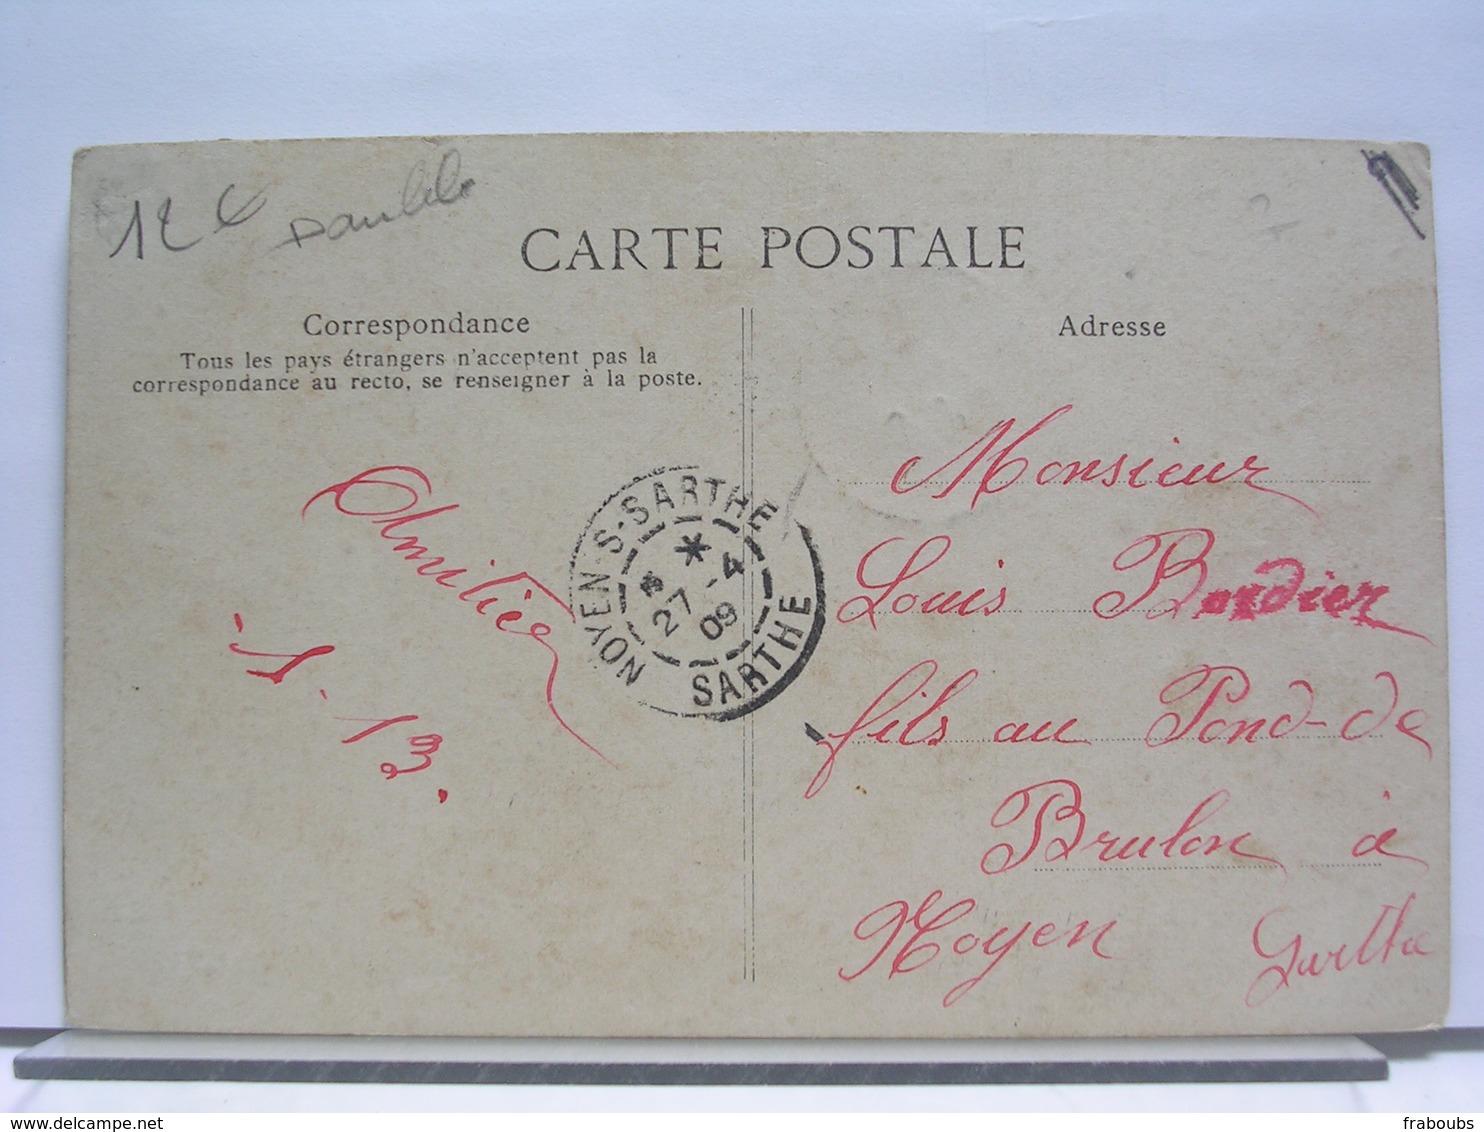 12 €
CARTE POSTALE
Correspondance
Tous les pays étrangers n'acceptent pas la
correspondance au recto, se renseigner à la poste.
Amitiés
S. B.
NOYEN-S-SARTHE
27 -4
09
SARTHE
Adresse
Monsieur
Louis Bordier
fils au Pond-de
Brulon à
Noyen Sarthe
fraboubs